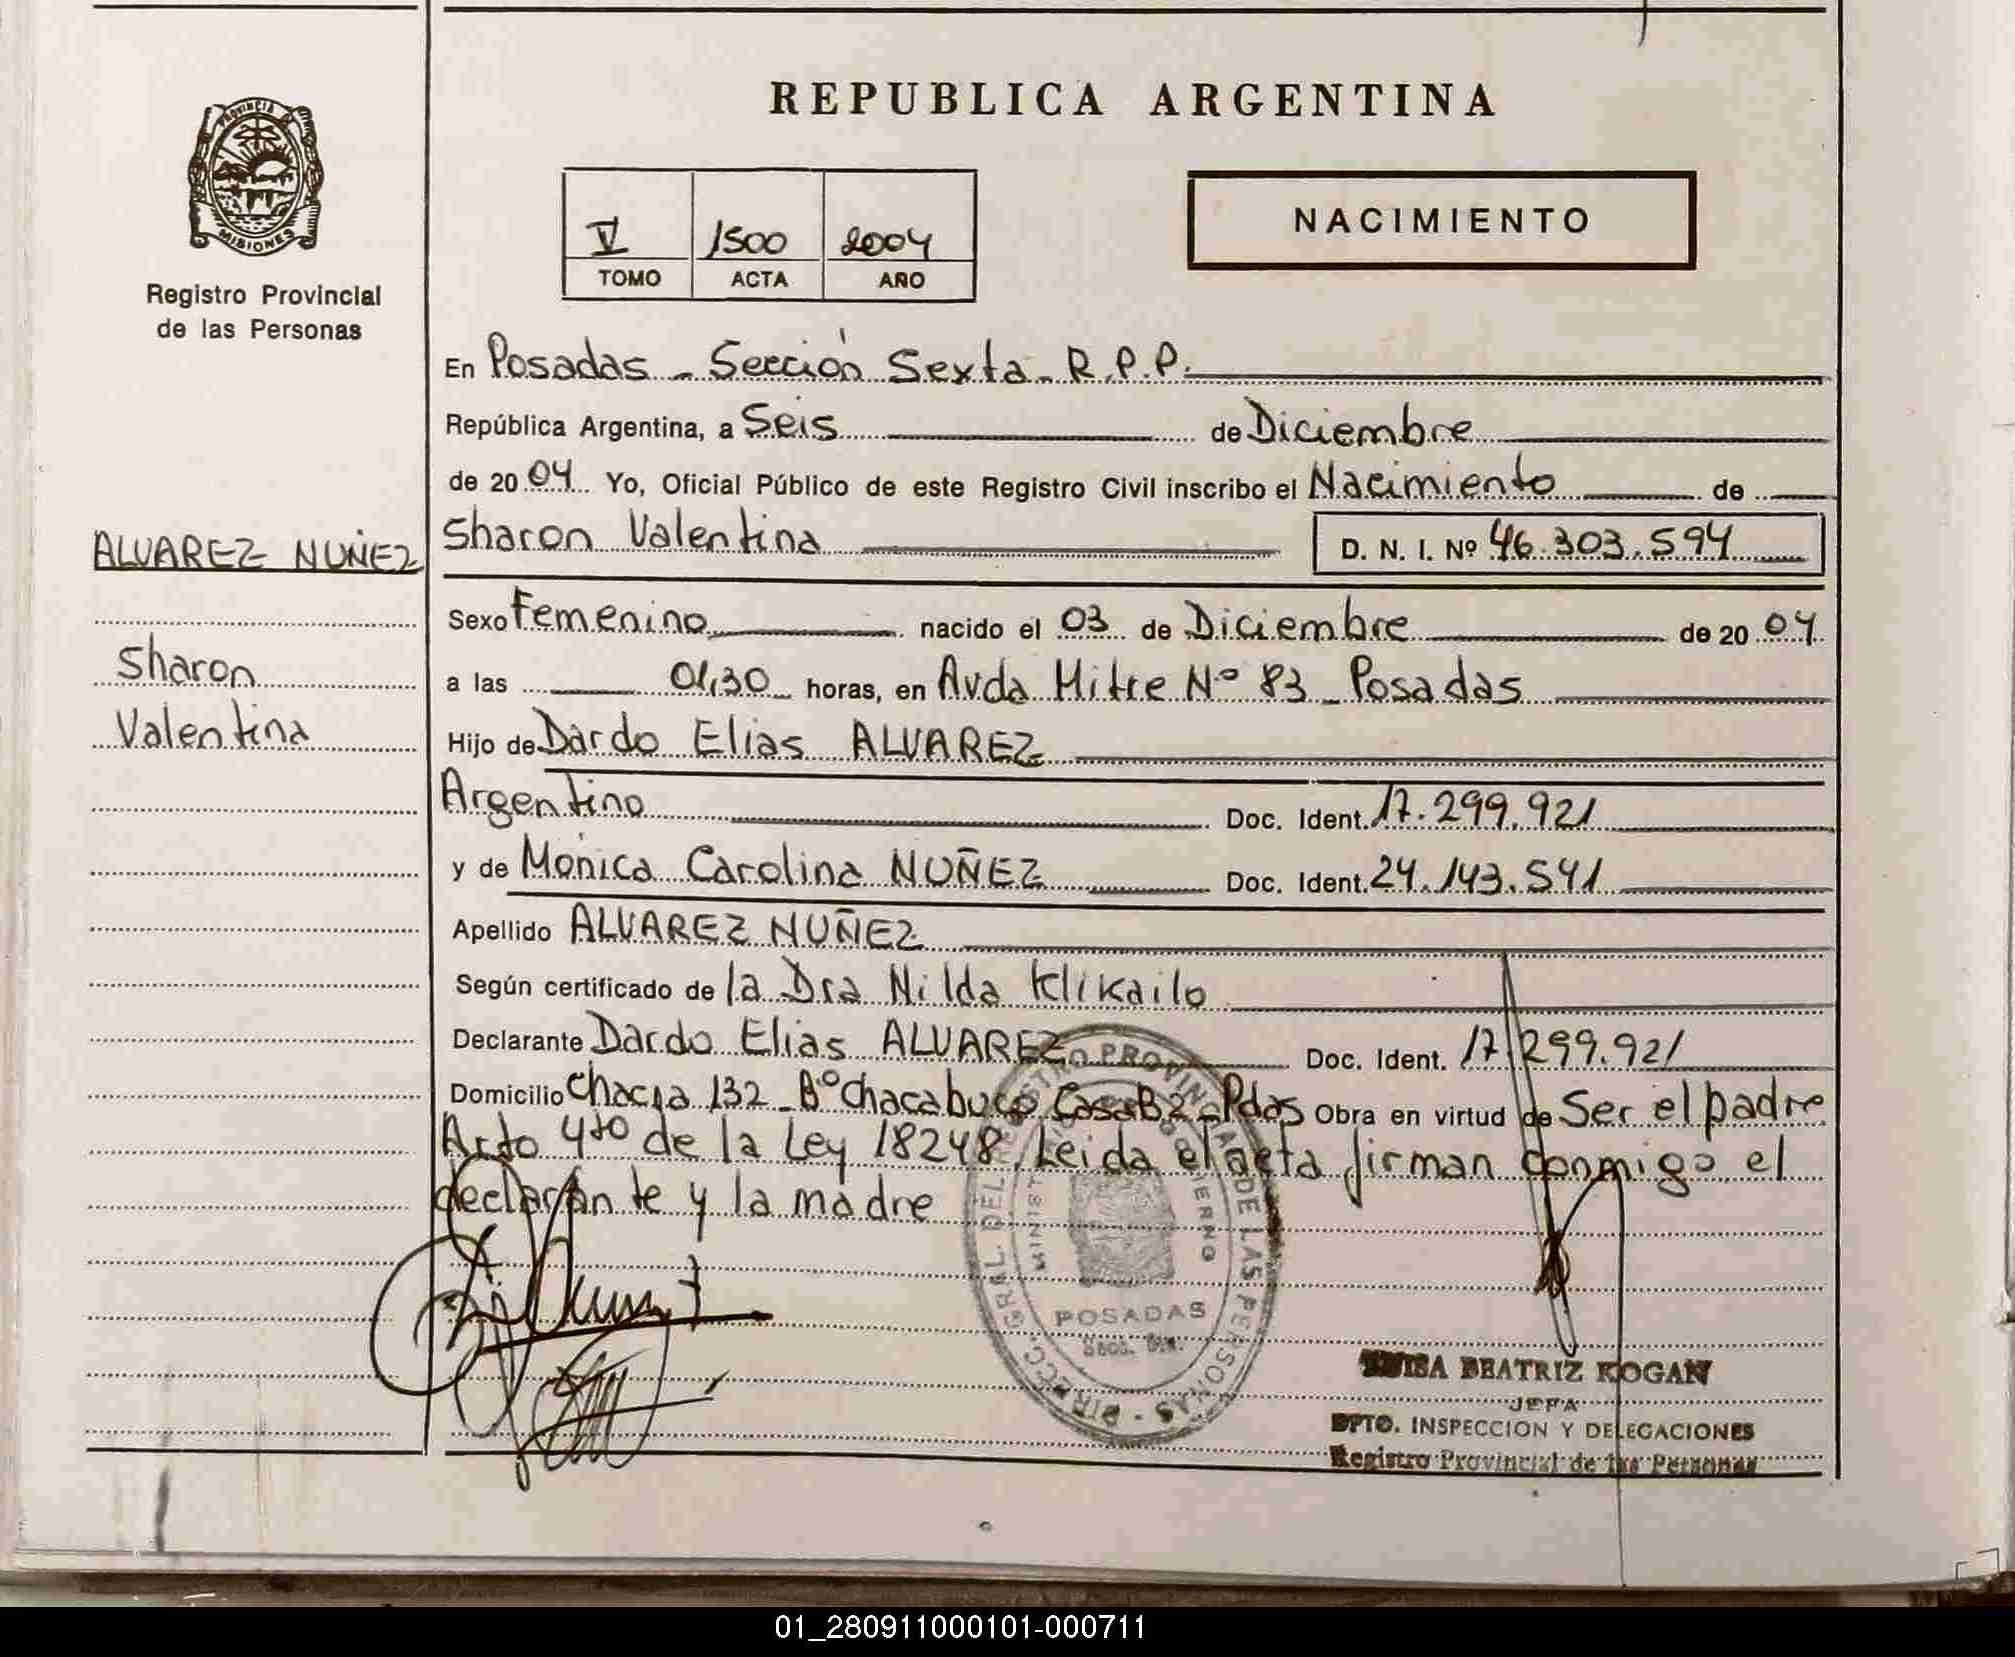 REPUBLICA ARGENTINA
PROVINCIA
MISIONES
Registro Provincial
de las Personas
V 1500 2004
TOMO ACTA AÑO
NACIMIENTO
En Posadas - Sección Sexta - R.P.P.
República Argentina, a Seis de Diciembre
de 2004 Yo, Oficial Público de este Registro Civil inscribo el Nacimiento de
ALVAREZ NUÑEZ
Sharon Valentina D. N. I. Nº 46.303.594
Sexo Femenino nacido el 03 de Diciembre de 2004
Sharon
a las 01,30 horas, en Avda Mitre Nº 83 - Posadas
Valentina
Hijo de Dardo Elias ALVAREZ
Argentino Doc. Ident. 17.299.921
y de Monica Carolina NUÑEZ Doc. Ident. 24.143.541
Apellido ALVAREZ NUÑEZ
Según certificado de la Dra Nilda Klikailo
Declarante Dardo Elias ALVAREZ Doc. Ident. 17.299.921
Domicilio Chacra 132 - Bº Chacabuco Casa B2 - Pdas Obra en virtud de Ser el padre
Arto 4to de la Ley 18248. Leida el acta firman conmigo el
declarante y la madre
DIRECC. GRAL. DEL REGISTRO PROVINCIAL DE LAS PERSONAS
MINISTERIO GOBIERNO
POSADAS
BEATRIZ KOGAN
JEFA
DPTO. INSPECCION Y DELEGACIONES
Registro Provincial de las Personas
01_280911000101-000711